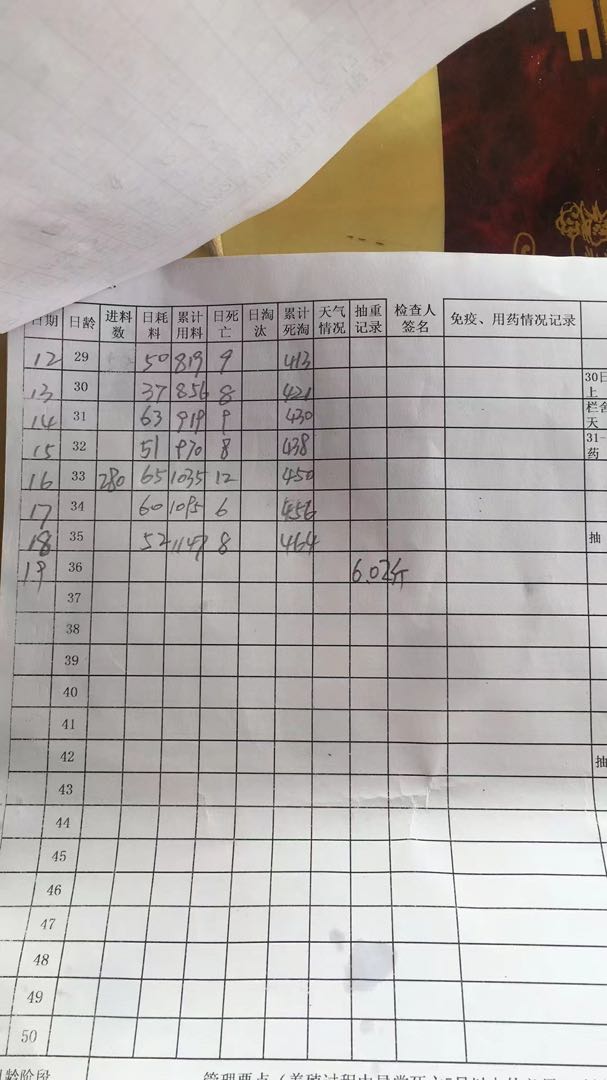 日期 日龄 进料数 日耗料 累计用料 日死亡 日淘汰 累计死淘 天气情况 抽重记录 检查人签名 免疫、用药情况记录
12 29 50 819 9 413
13 30 37 856 8 421 30日
上
14 31 63 919 9 430 栏舍
天
15 32 51 970 8 438 31-
药
16 33 280 65 1035 12 450
17 34 60 1095 6 456
18 35 52 1147 8 464 抽
19 36 6.02斤
37
38
39
40
41
42 抽
43
44
45
46
47
48
49
50
日龄阶段